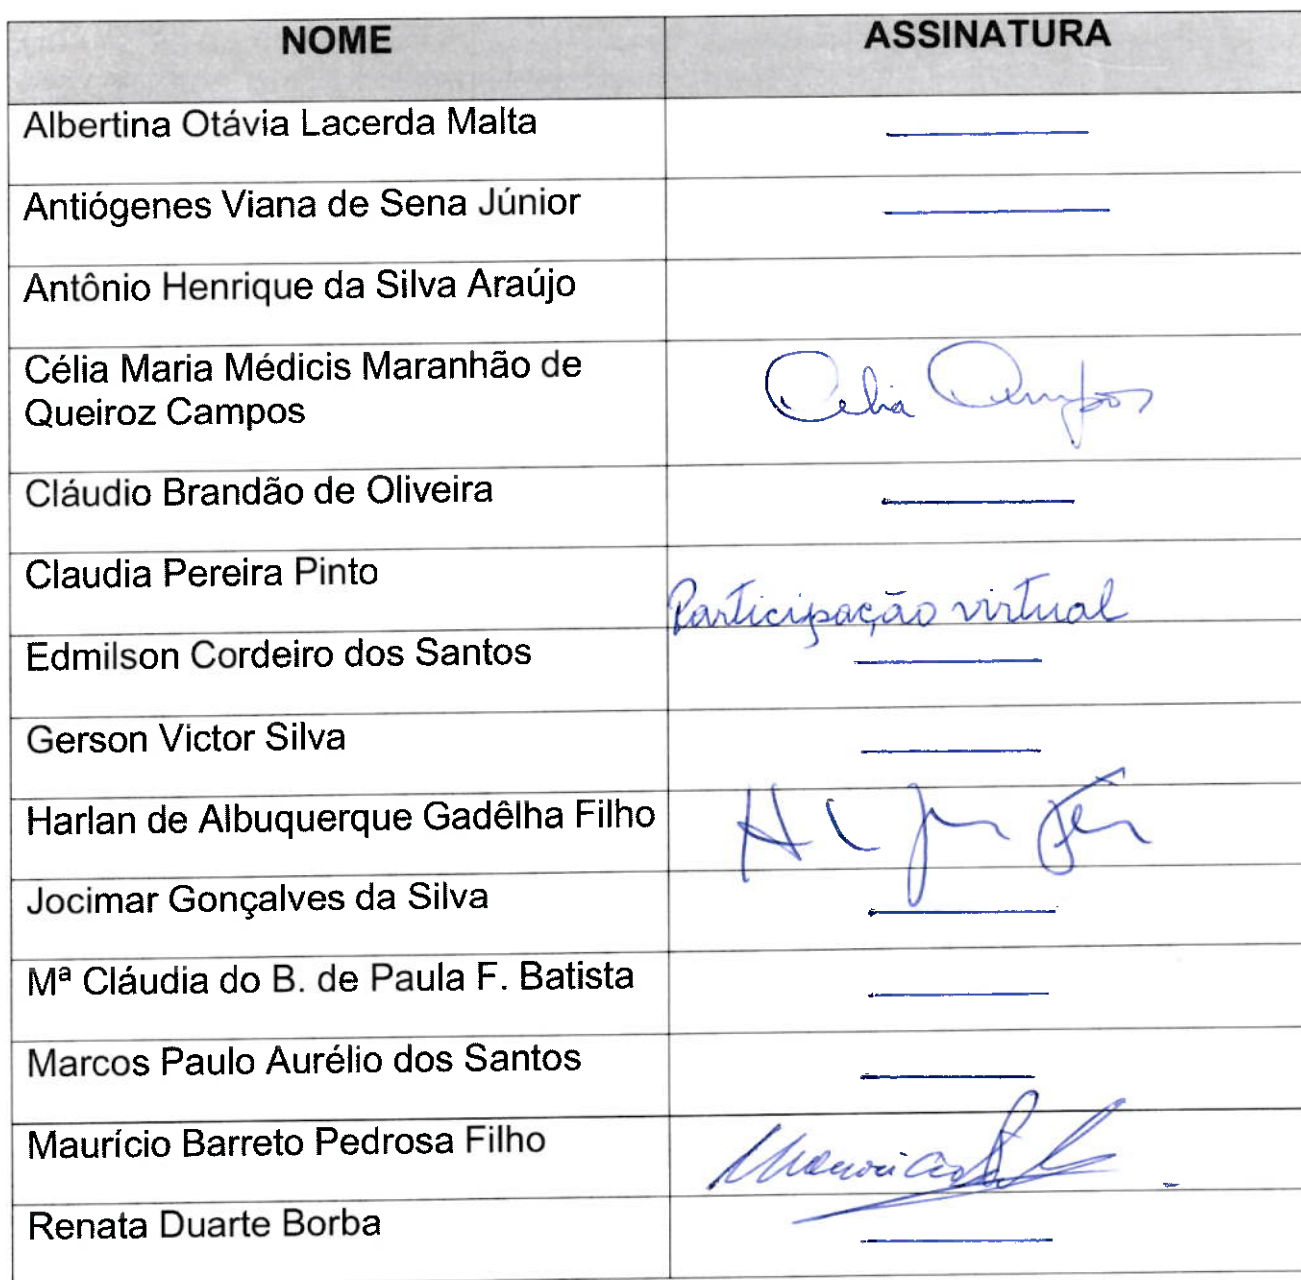 NOME ASSINATURA
Albertina Otávia Lacerda Malta
Antiógenes Viana de Sena Júnior
Antônio Henrique da Silva Araújo
Célia Maria Médicis Maranhão de
Queiroz Campos
Celia Campos
Cláudio Brandão de Oliveira
Claudia Pereira Pinto
Participação virtual
Edmilson Cordeiro dos Santos
Gerson Victor Silva
Harlan de Albuquerque Gadêlha Filho
Jocimar Gonçalves da Silva
Mª Cláudia do B. de Paula F. Batista
Marcos Paulo Aurélio dos Santos
Maurício Barreto Pedrosa Filho
Renata Duarte Borba